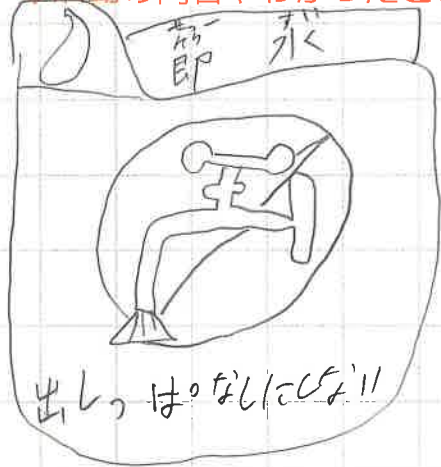 節水
出しっぱなしにしない